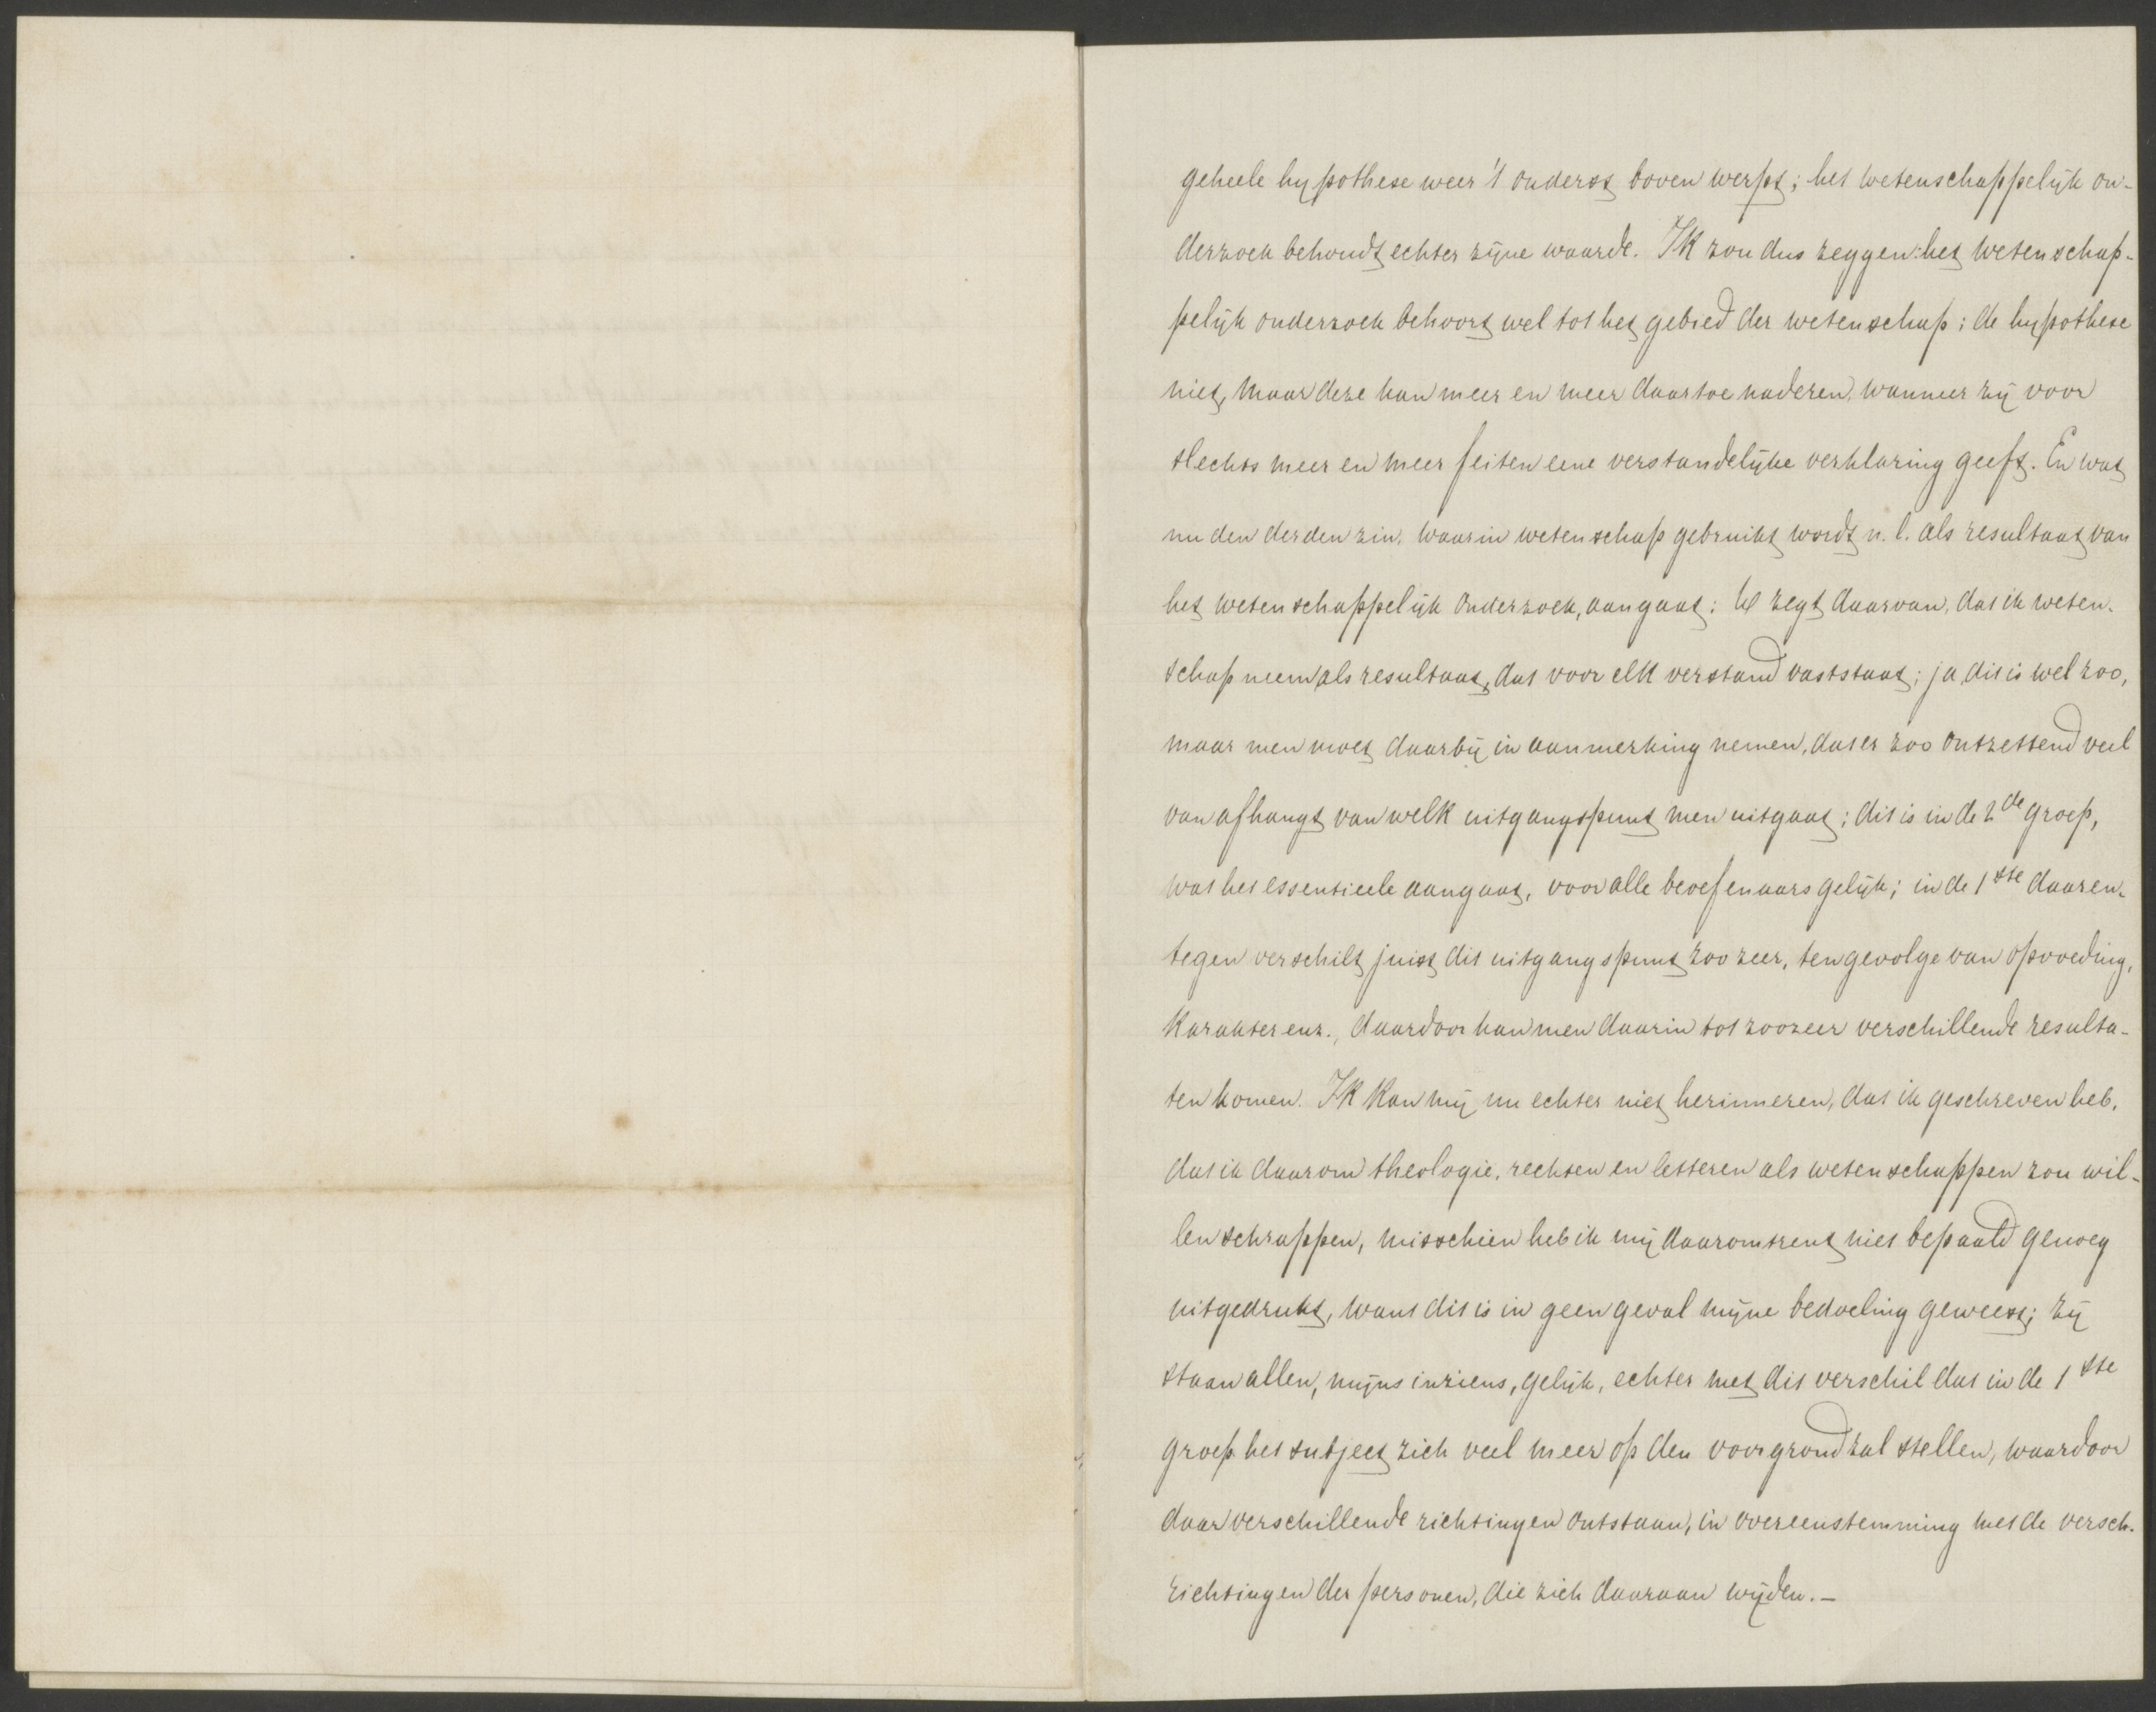 geheele hypothese weer 't onderst boven werpt; het wetenschappelijk on-
derzoek behoudt echter zijne waarde. Ik zou dus zeggen: het wetenschap-
pelijk onderzoek behoort wel tot het gebied der wetenschap; de hypothese
niet, maar deze kan meer en meer daartoe naderen, wanneer zij voor
slechts meer en meer feiten eene verstandelijke verklaring geeft. En wat
nu den derden zin, waarin wetenschap gebruikt wordt n.l. als resultaat van
het wetenschappelijk onderzoek, aangaat: U zegt daarvan, dat ik weten-
schap neem als resultaat, dat voor elk verstand vaststaat; ja, dit is wel zoo,
maar men moet daarbij in aanmerking nemen, dat er zoo ontzettend veel
van afhangt van welk uitgangspunt men uitgaat; dit is in de 2de groep,
wat het essentieele aangaat, voor alle beoefenaars gelijk; in de 1ste daaren-
tegen verschilt juist dit uitgangspunt zoo zeer, ten gevolge van opvoeding,
karakter enz., daardoor kan men daarin tot zoozeer verschillende resulta-
ten komen. Ik kan mij nu echter niet herinneren, dat ik geschreven heb,
dat ik daarom theologie, rechten en letteren als wetenschappen zou wil-
len schrappen, misschien heb ik mij daaromtrent niet bepaald genoeg
uitgedrukt, want dit is in geen geval mijne bedoeling geweest; zij
staan allen, mijns inziens, gelijk, echter met dit verschil dat in de 1ste
groep het subject zich veel meer op den voorgrond zal stellen, waardoor
daar verschillende richtingen ontstaan, in overeenstemming met de versch.
richtingen der personen, die zich daaraan wijden.—